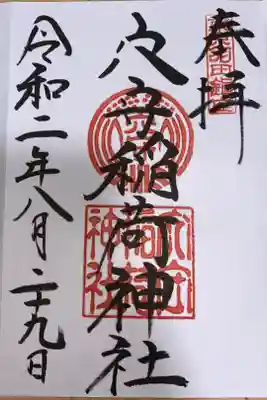 奉拝
穴守稲荷神社
令和二年八月二十九日